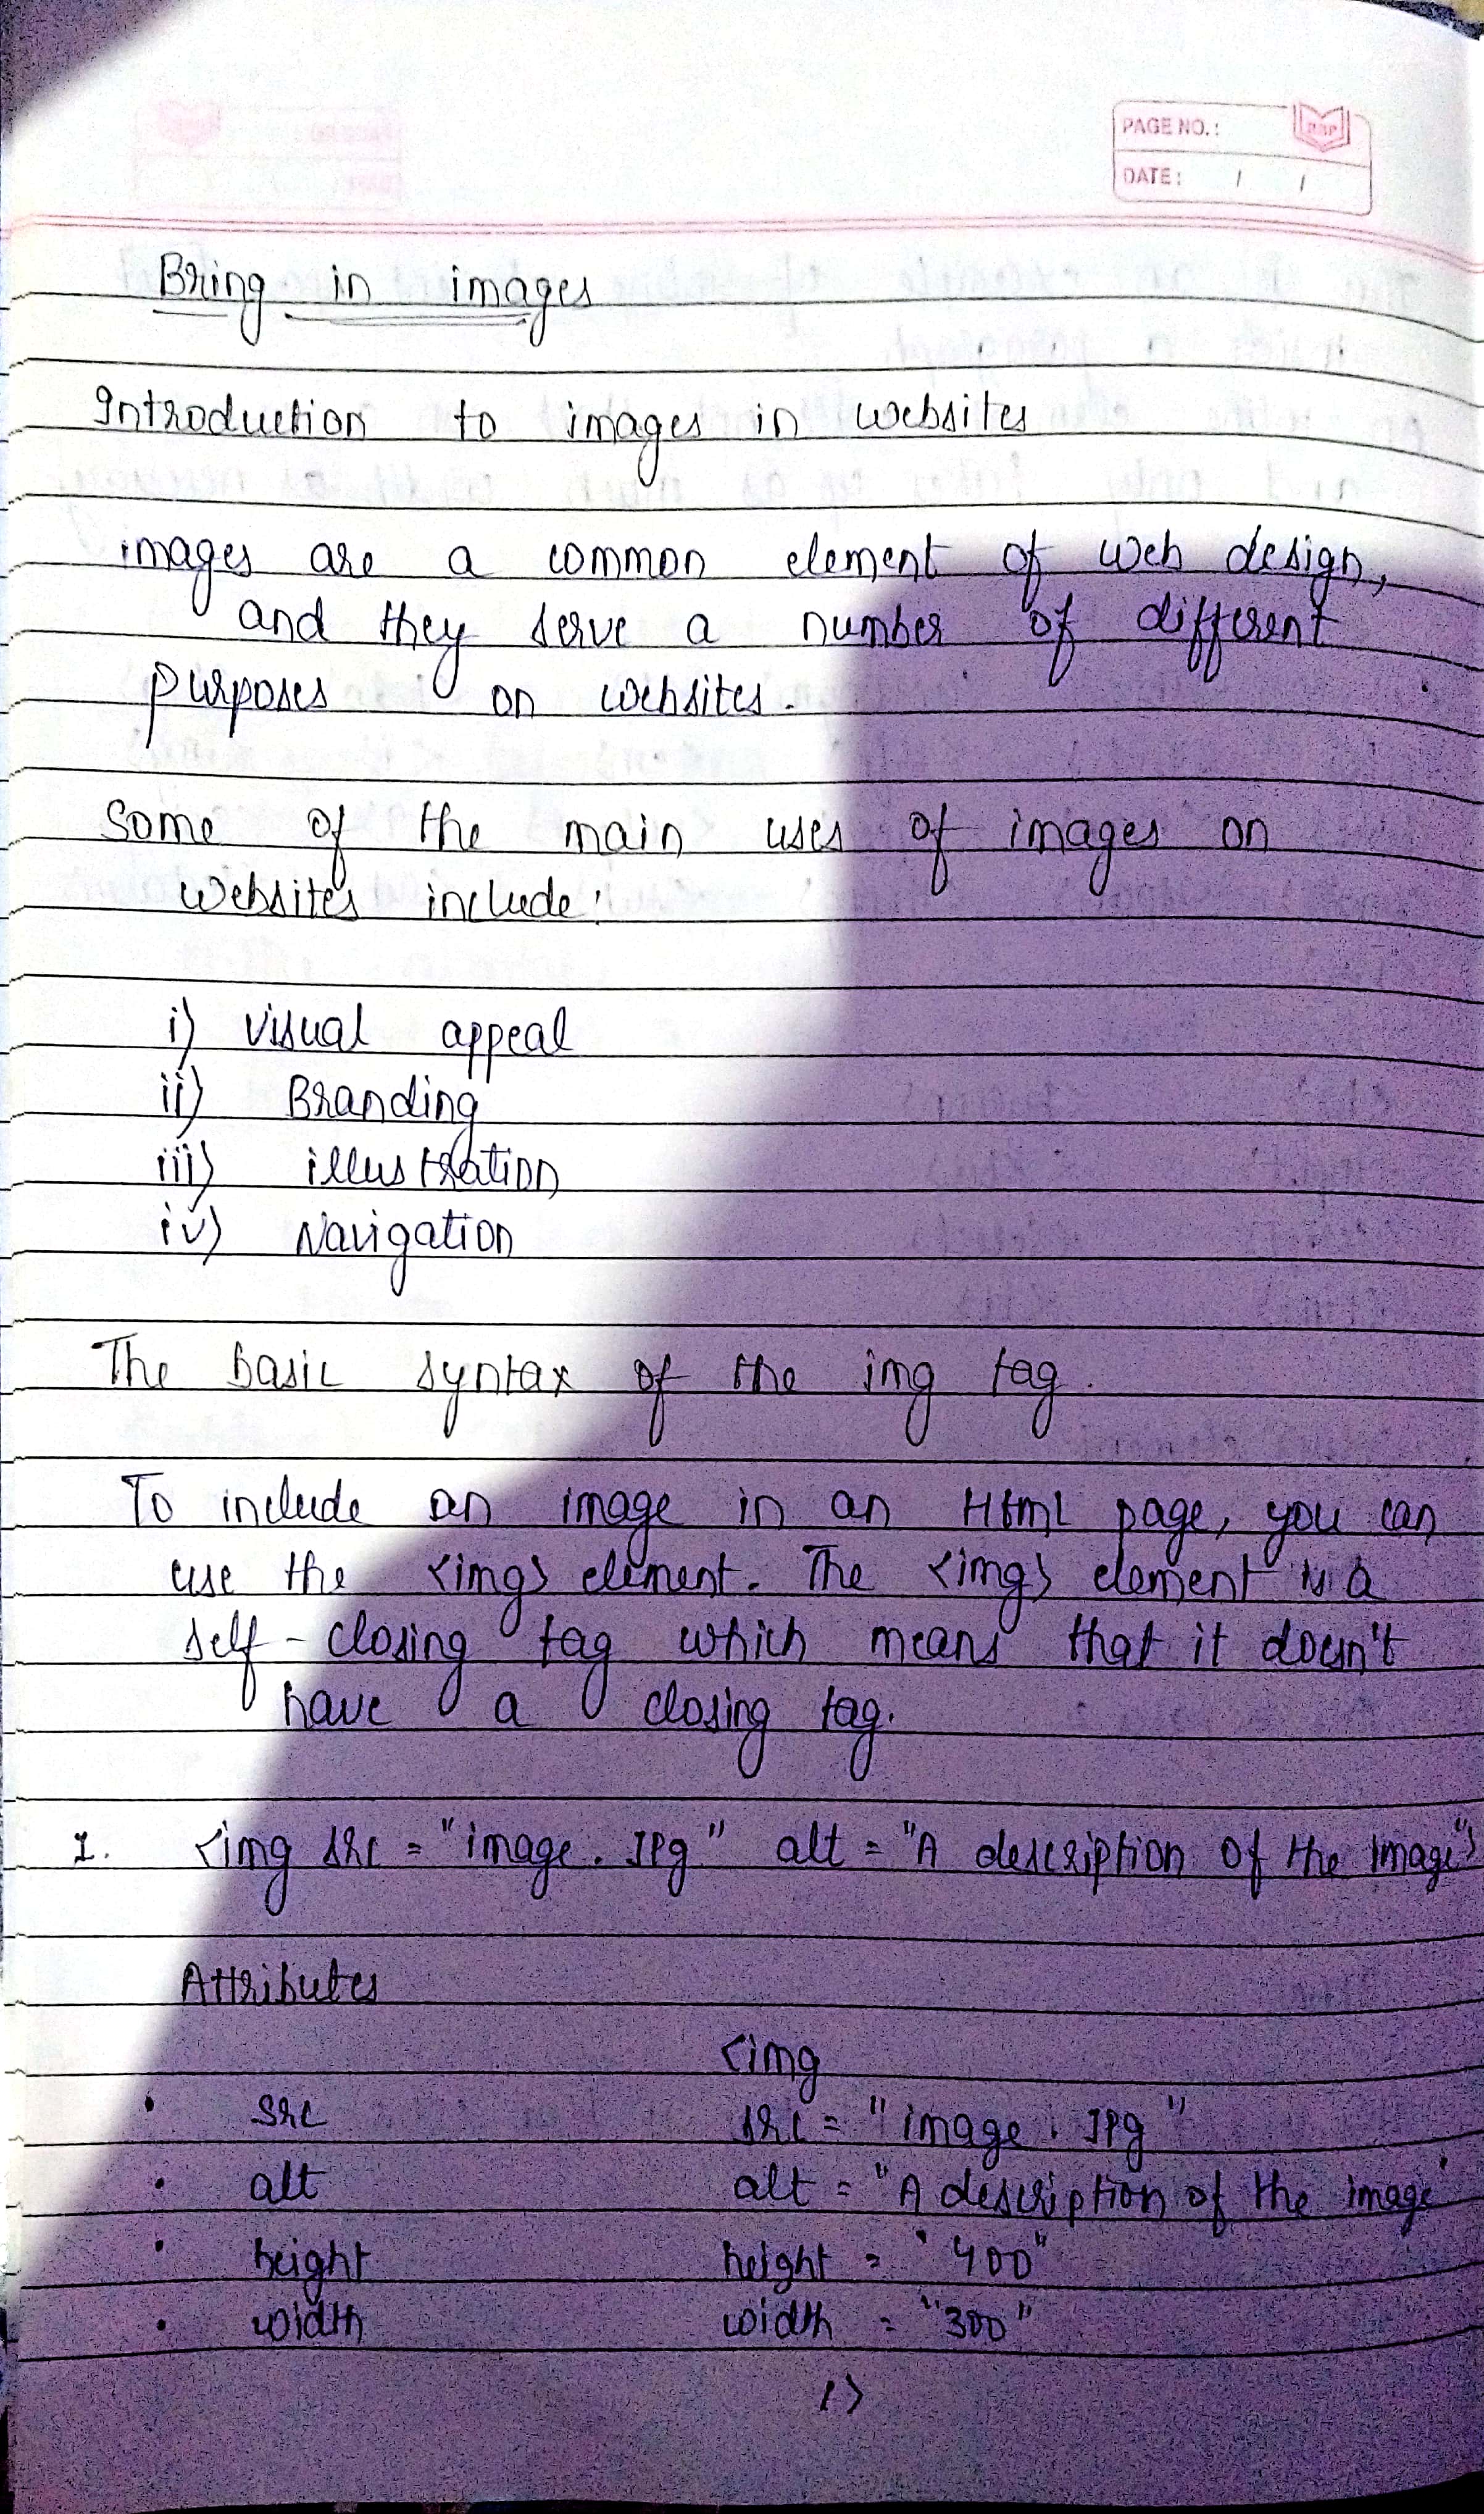 PAGE NO.:
DATE: / /
Bring in images
Introduction to images in websites
images are a common element of web design,
and they serve a number of different
purposes on websites.
Some of the main uses of images on
websites include:
i) Visual appeal
ii) Branding
iii) illustration
iv) Navigation
The basic syntax of the img tag.
To include an image in an Html page, you can
use the <img> element. The <img> element is a
self-closing tag which means that it doesn't
have a closing tag.
1. <img src = "image.JPg" alt = "A description of the image">
Attributes
<img
• src src = "image.JPg"
• alt alt = "A description of the image"
• height height = "400"
• width width = "300"
/>